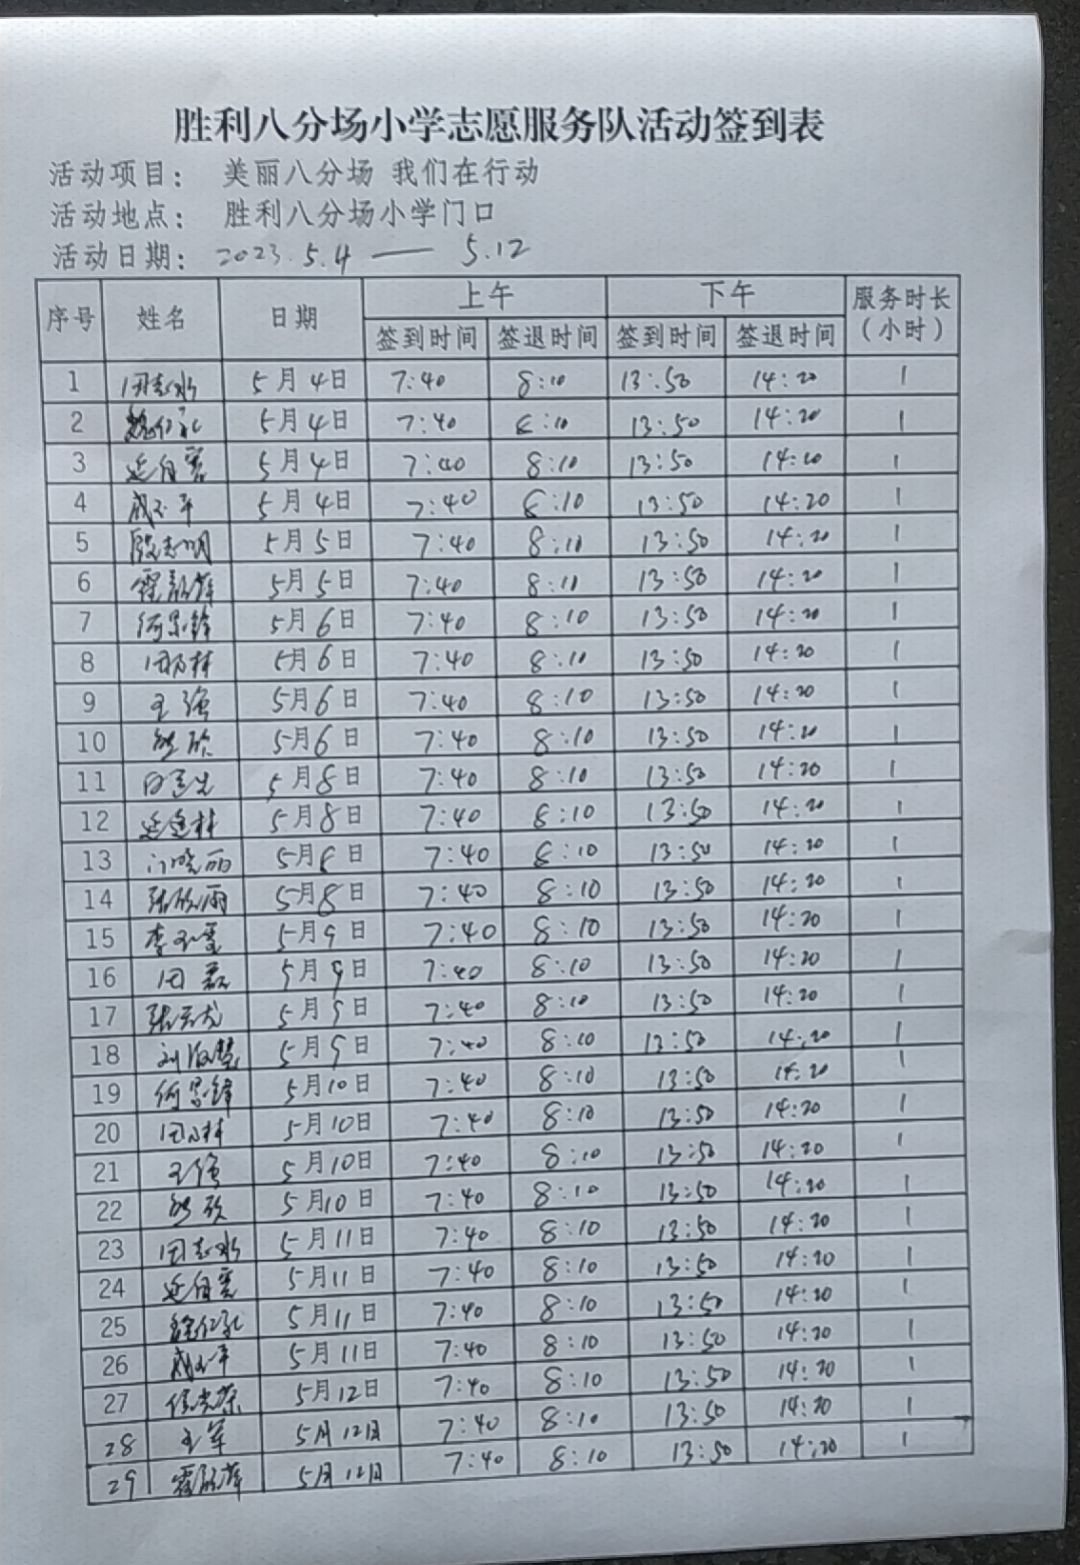 胜利八分场小学志愿服务队活动签到表
活动项目： 美丽八分场 我们在行动
活动地点： 胜利八分场小学门口
活动日期： 2023.5.4 — 5.12
序号 姓名 日期 上午 下午 服务时长（小时）
签到时间 签退时间 签到时间 签退时间
1 田志水 5月4日 7:40 8:10 13:50 14:20 1
2 魏仁礼 5月4日 7:40 8:10 13:50 14:20 1
3 延自亮 5月4日 7:40 8:10 13:50 14:20 1
4 成玉平 5月4日 7:40 8:10 13:50 14:20 1
5 殷志明 5月5日 7:40 8:10 13:50 14:20 1
6 5月5日 7:40 8:10 13:50 14:20 1
7 何思锋 5月6日 7:40 8:10 13:50 14:20 1
8 田乃林 5月6日 7:40 8:10 13:50 14:20 1
9 王强 5月6日 7:40 8:10 13:50 14:20 1
10 5月6日 7:40 8:10 13:50 14:20 1
11 5月8日 7:40 8:10 13:50 14:20 1
12 延廷林 5月8日 7:40 8:10 13:50 14:20 1
13 门晓丽 5月8日 7:40 8:10 13:50 14:20 1
14 张欣雨 5月8日 7:40 8:10 13:50 14:20 1
15 5月9日 7:40 8:10 13:50 14:20 1
16 田磊 5月9日 7:40 8:10 13:50 14:20 1
17 张云龙 5月9日 7:40 8:10 13:50 14:20 1
18 刘淑慧 5月9日 7:40 8:10 13:50 14:20 1
19 何思锋 5月10日 7:40 8:10 13:50 14:20 1
20 田乃林 5月10日 7:40 8:10 13:50 14:20 1
21 王强 5月10日 7:40 8:10 13:50 14:20 1
22 5月10日 7:40 8:10 13:50 14:20 1
23 田志水 5月11日 7:40 8:10 13:50 14:20 1
24 延自亮 5月11日 7:40 8:10 13:50 14:20 1
25 魏仁礼 5月11日 7:40 8:10 13:50 14:20 1
26 成玉平 5月11日 7:40 8:10 13:50 14:20 1
27 5月12日 7:40 8:10 13:50 14:20 1
28 王军 5月12日 7:40 8:10 13:50 14:20 1
29 5月12日 7:40 8:10 13:50 14:20 1